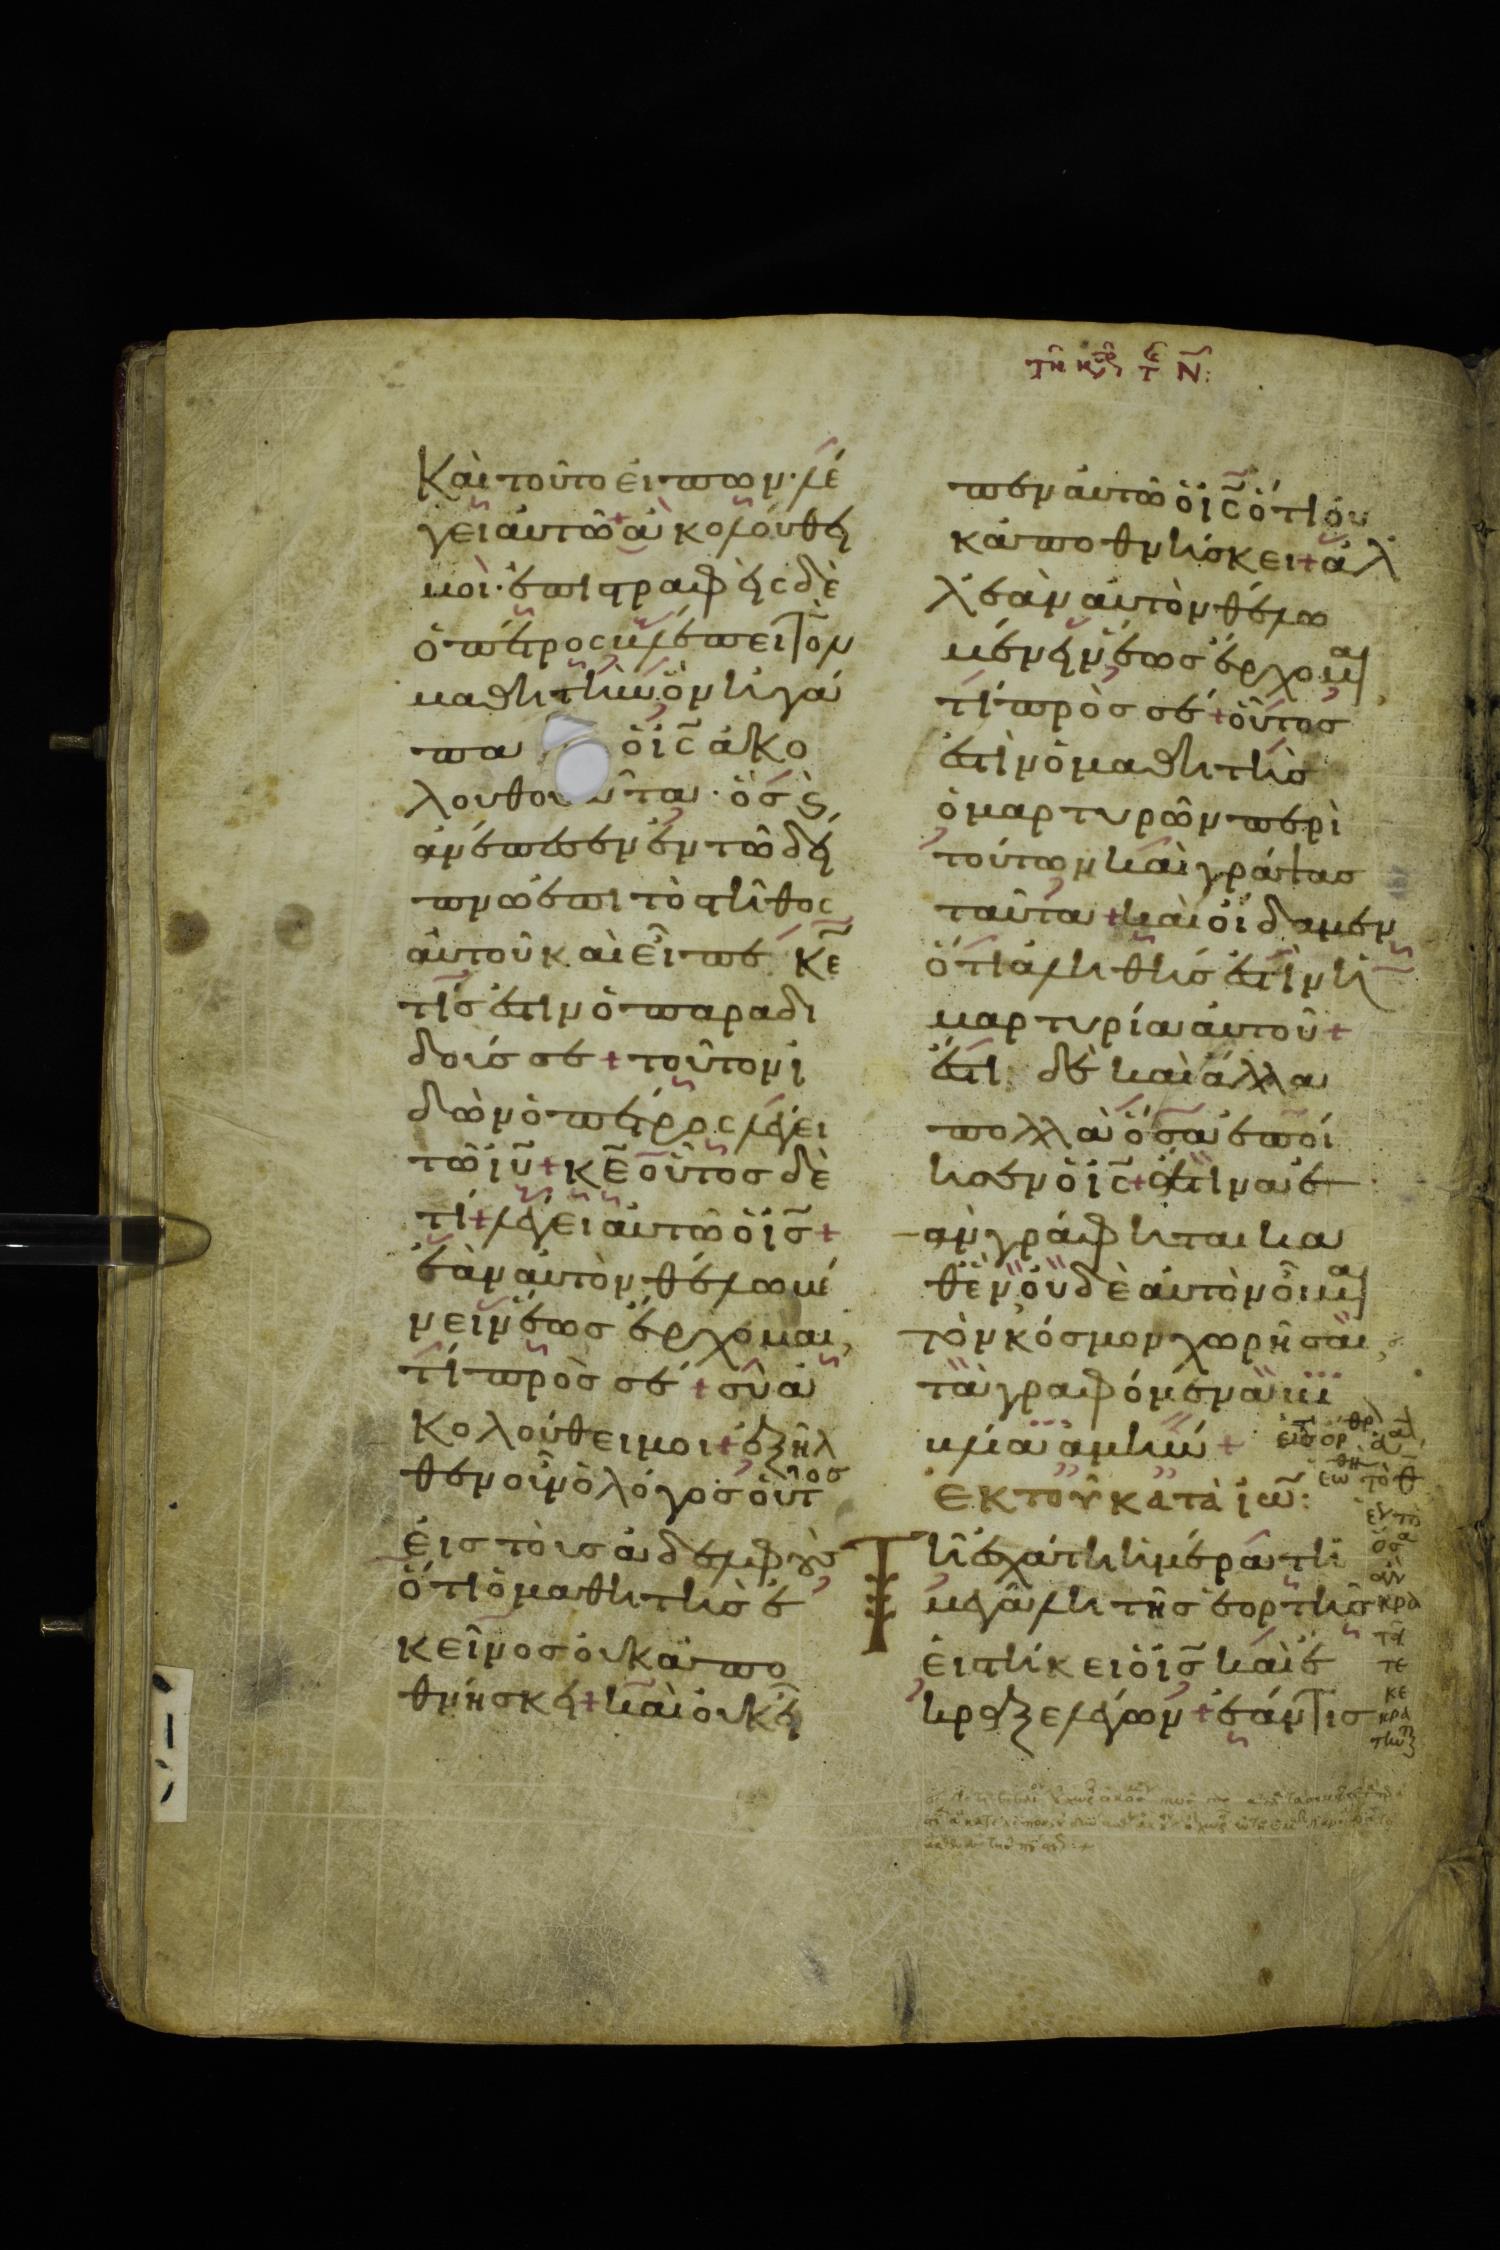 τῆ κυ τ Ν:
Καὶ τοῦτο ἐιπων· λέ
γει ἀυτῶ + ἀκολούθει
μοὶ· ἐπιστραφεὶς δὲ
ὁ πέτρος βλέπει τὸν
μαθητὴν ὃν ἠγά
πα ὁ ις ἀκο
λουθοῦντα· ὃσ κ
ἀνέπεσεν ἐν τῶ δεί
πνω ἐπι τὸ στῆθος
ἀυτοῦ καὶ εἶπε κε
τίσ ἐστιν ὁ παραδι
δούσ σε + τοῦτον ἰ
δὼν ὁ πέτρος λέγει
τῶ ιυ + κε οὗτοσ δὲ
τί + λέγει ἀυτῶ ὁ ισ +
ἐὰν ἀυτὸν θέλω μέ
νειν ἕωσ ἔρχομαι,
τί πρὸσ σέ + σῦ ἀ
κολούθει μοι + ἐξῆλ
θεν οὖν ὁ λόγοσ οὗτοσ
ἐισ τοὺσ ἀδελφοὺσ
ὅτι ὁ μαθητὴσ ἐ
κεῖνοσ ὀυκ ἀπο
θνήσκει + καὶ ὀυκ εἶ
πεν ἀυτῶ ὁ ις ὅτι ὀυ
κ ἀποθνήσκει + ἀλ
λ' ἐὰν ἀυτὸν θέλω
μένειν ἕωσ ἔρχομαι
τί πρὸσ σέ + οὗτοσ
ἐστὶν ὁ μαθητὴσ
ὁ μαρτυρῶν περὶ
τούτων καὶ γράψασ
ταῦτα + καὶ οἴδαμεν
ὅτι ἀληθήσ ἐστὶν ἡ
μαρτυρία ἀυτοῦ +
ἔστι δὲ καὶ ἄλλα
πολλὰ ὅσα ἐποί
ησεν ὁ ις + ἅτινα ἐ
ὰν γράφηται κα
θ' ἓν ὀυδὲ ἀυτὸν οἶμαι
τὸν κόσμον χωρῆσαι
τὰ γραφόμενα βι
βλία ἀμήν +
ΕΚ ΤΟΥ ΚΑΤΑ ιω:
Τῆ ἐσχάτη ἡμέρα τῆ
μεγάλη τῆσ ἑορτῆσ
ἑιστήκει ὁ ισ καὶ ἔ
κραξε λέγων + ἐάν τισ
κρα
τε
κε
κρα